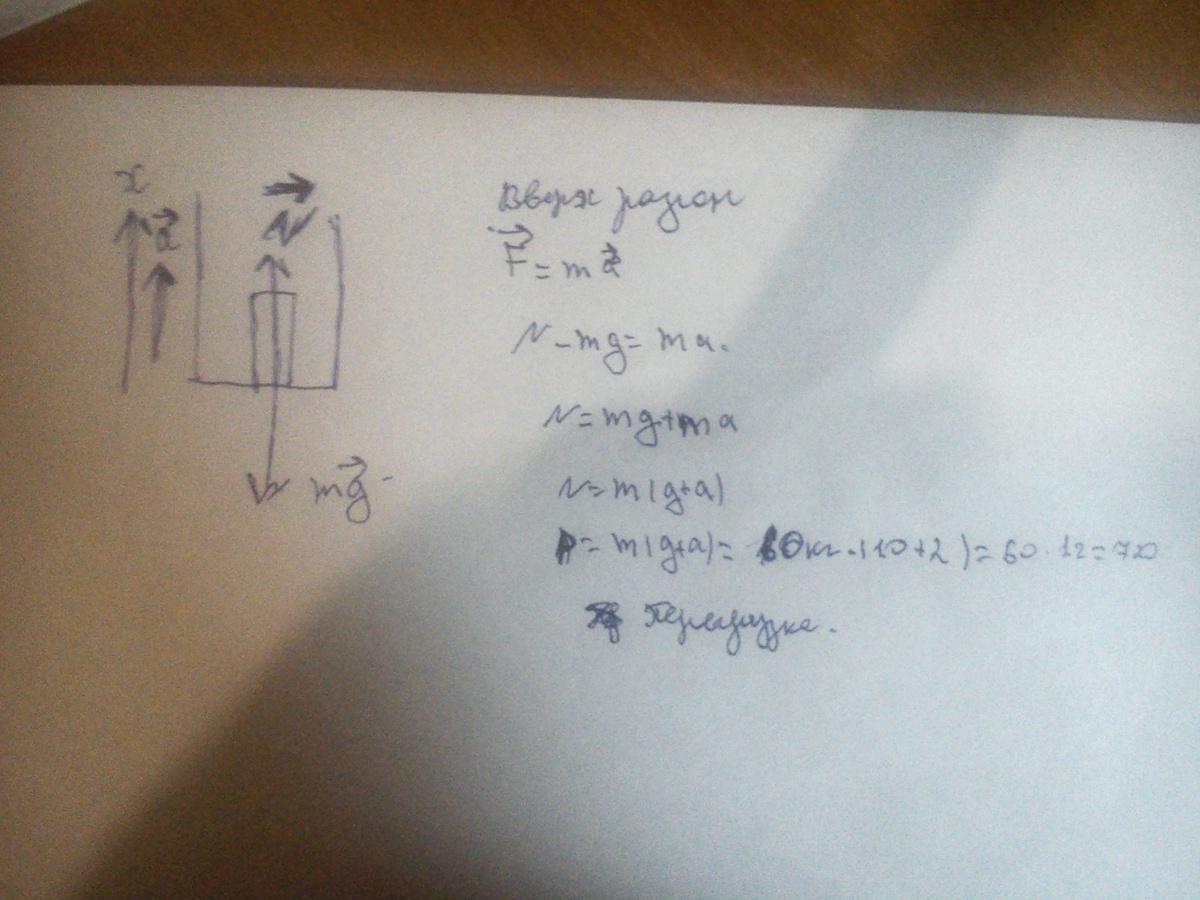 x
a⃗
N⃗
mg⃗
Вверх разгон
F⃗ = m a⃗
N - mg = ma.
N = mg + ma
N = m(g+a)
P = m(g+a) = 60кг·(10+2) = 60·12 = 720
Перегрузка.